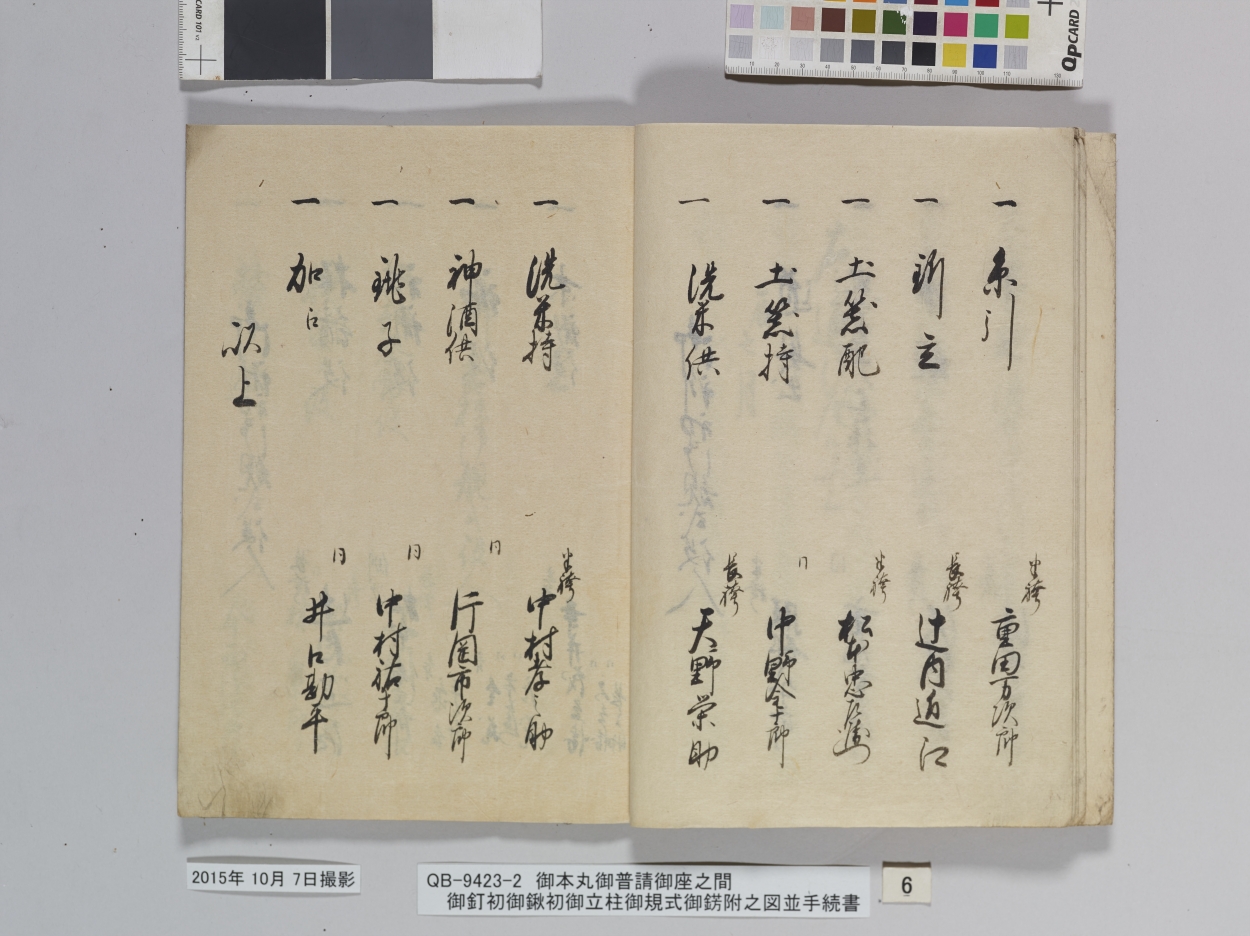 一 糸引
半袴 重田万次郎
一 釿立
長袴 辻内近江
一 土器配
半袴 松本忠左衛門
一 土器持
同 中野金十郎
一 洗米供
長袴 天野栄助
一 洗米持
半袴 中村孝之助
一 神酒供
同 片岡市次郎
一 銚子
同 中村祐十郎
一 加
同 井口勘平
以上
2015年 10月 7日撮影
QB-9423-2 御本丸御普請御座之間
御釘初御鍬初御立柱御規式御錺附之図並手続書
6
CARD 101
QPCARD